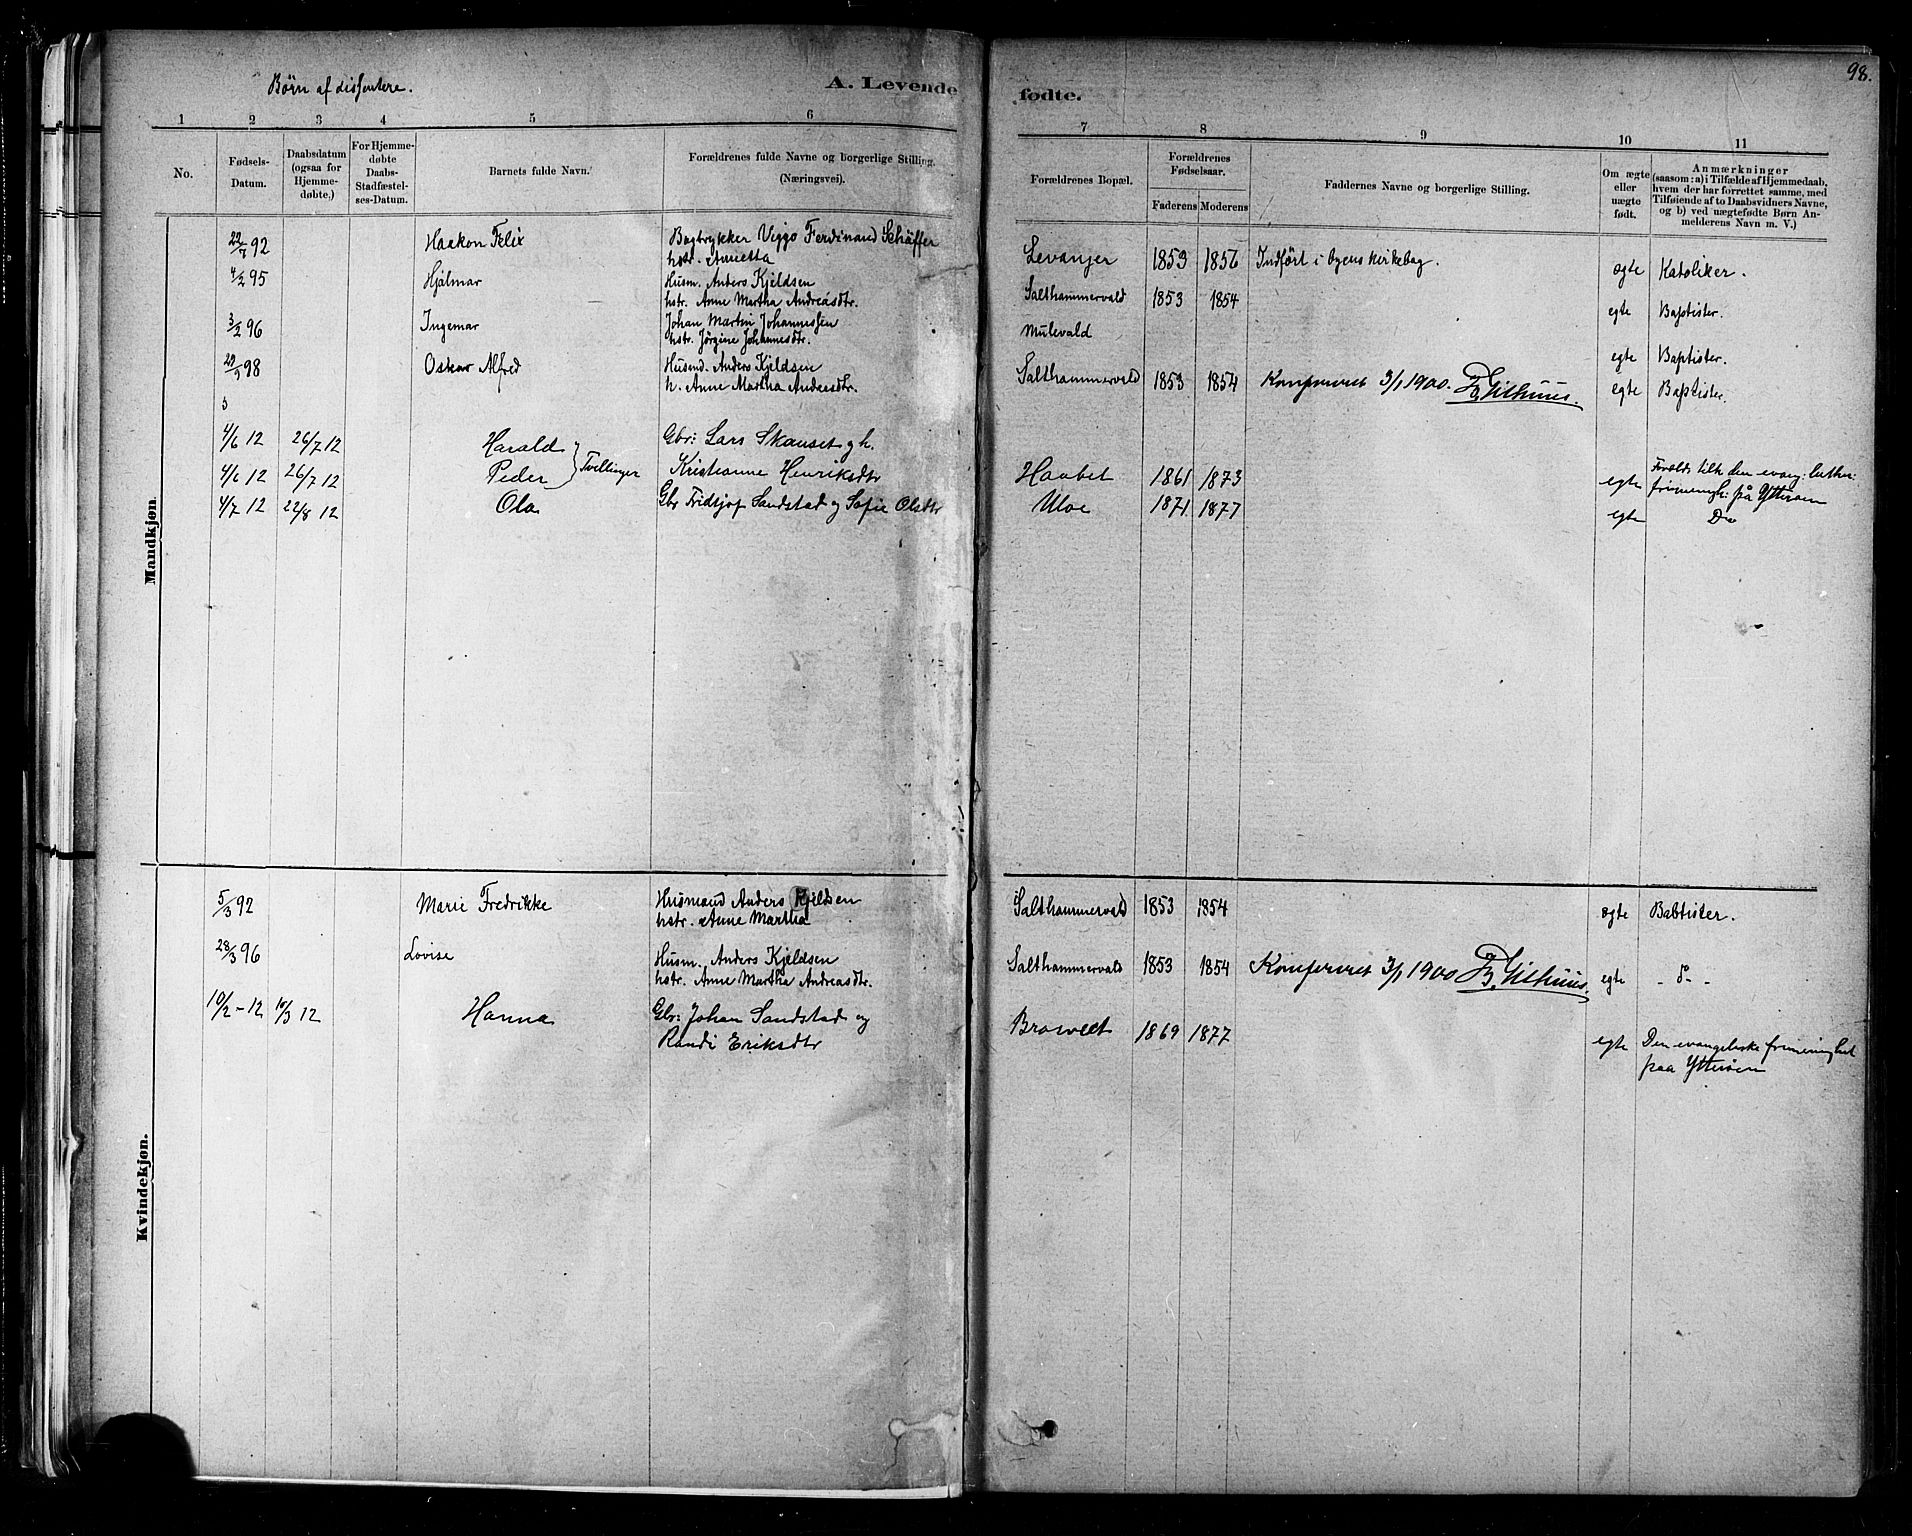 98.
Børn af dissentere.
A. Levende fødte.
1 2 3 4 5 6 7 8 9 10 11
No.
Fødsels-
Datum.
Daabsdatum
(ogsaa for
Hjemme-
døbte,)
For Hjemme-
døbte
Daabs-
Stadfæstel-
ses-Datum.
Barnets fulde Navn.
Forældrenes fulde Navne og borgerlige Stilling.
(Næringsvei).
Forældrenes Bopæl.
Forældrenes
Fødselsaar.
Faderens Moderens
Faddernes Navne og borgerlige Stilling.
Om ægte
eller
uægte
født.
Anmærkninger
(saasom: a) i Tilfælde af Hjemmedaab,
hvem der har forrettet samme, med
Tilføiende af to Daabsvidners Navne,
og b) ved uægtefødte Børn An-
melderens Navn m. V.)
Mandkjøn
22/7 92 Haakon Felix Bogtrykker Viggo Ferdinand Schäffer
hstr. Annetta Levanger 1853 1856 Indført i byens kirkebog. ægte Katoliker.
4/2 95 Hjälmar Husm. Anders Kjeldsen
hstr. Anne Martha Andreasdtr. Salthammervald 1853 1854 egte Baptister.
3/2 96 Ingemar Johan Martin Johannessen
hstr. Jörgine Johannesdtr. Mulevald egte Baptister.
Oskar Alfred Husmd. Anders Kjeldsen
h. Anne Martha Andersdtr. Salthammervald 1853 1854 Konfereret 3/1 1900. egte Baptister.
4/6 12 26/7 12 Harald Gbr: Lars Skanset og h.
4/6 12 26/7 12 Peder Tvillinger Kristianne Henriksdtr Haabet 1861 1873 egte Foreldr tilh den evang: luther:
frimenigh: på Ytterøen
4/7 12 22/8 12 Ola Gbr Fridtjof Sandstad og Sofie Olsdtr Uloe 1871 1877 egte Do
Kvindekjøn.
5/3 92 Marie Fredrikke Husmand Anders Kjeldsen
hstr. Anne Martha Salthammervald 1853 1854 ægte Babtister.
28/3 96 Lovise Husm. Anders Kjeldsen
hstr. Anne Martha Andreasdtr. Salthammervald 1853 1854 Konfereret 3/1 1900 egte - d° -
10/2 - 12 10/3 12 Hanna Gbr: Johan Sandstad og
Randi Eriksdtr 1869 1877 egte Den evangeliske frimenighet
paa Ytterøen